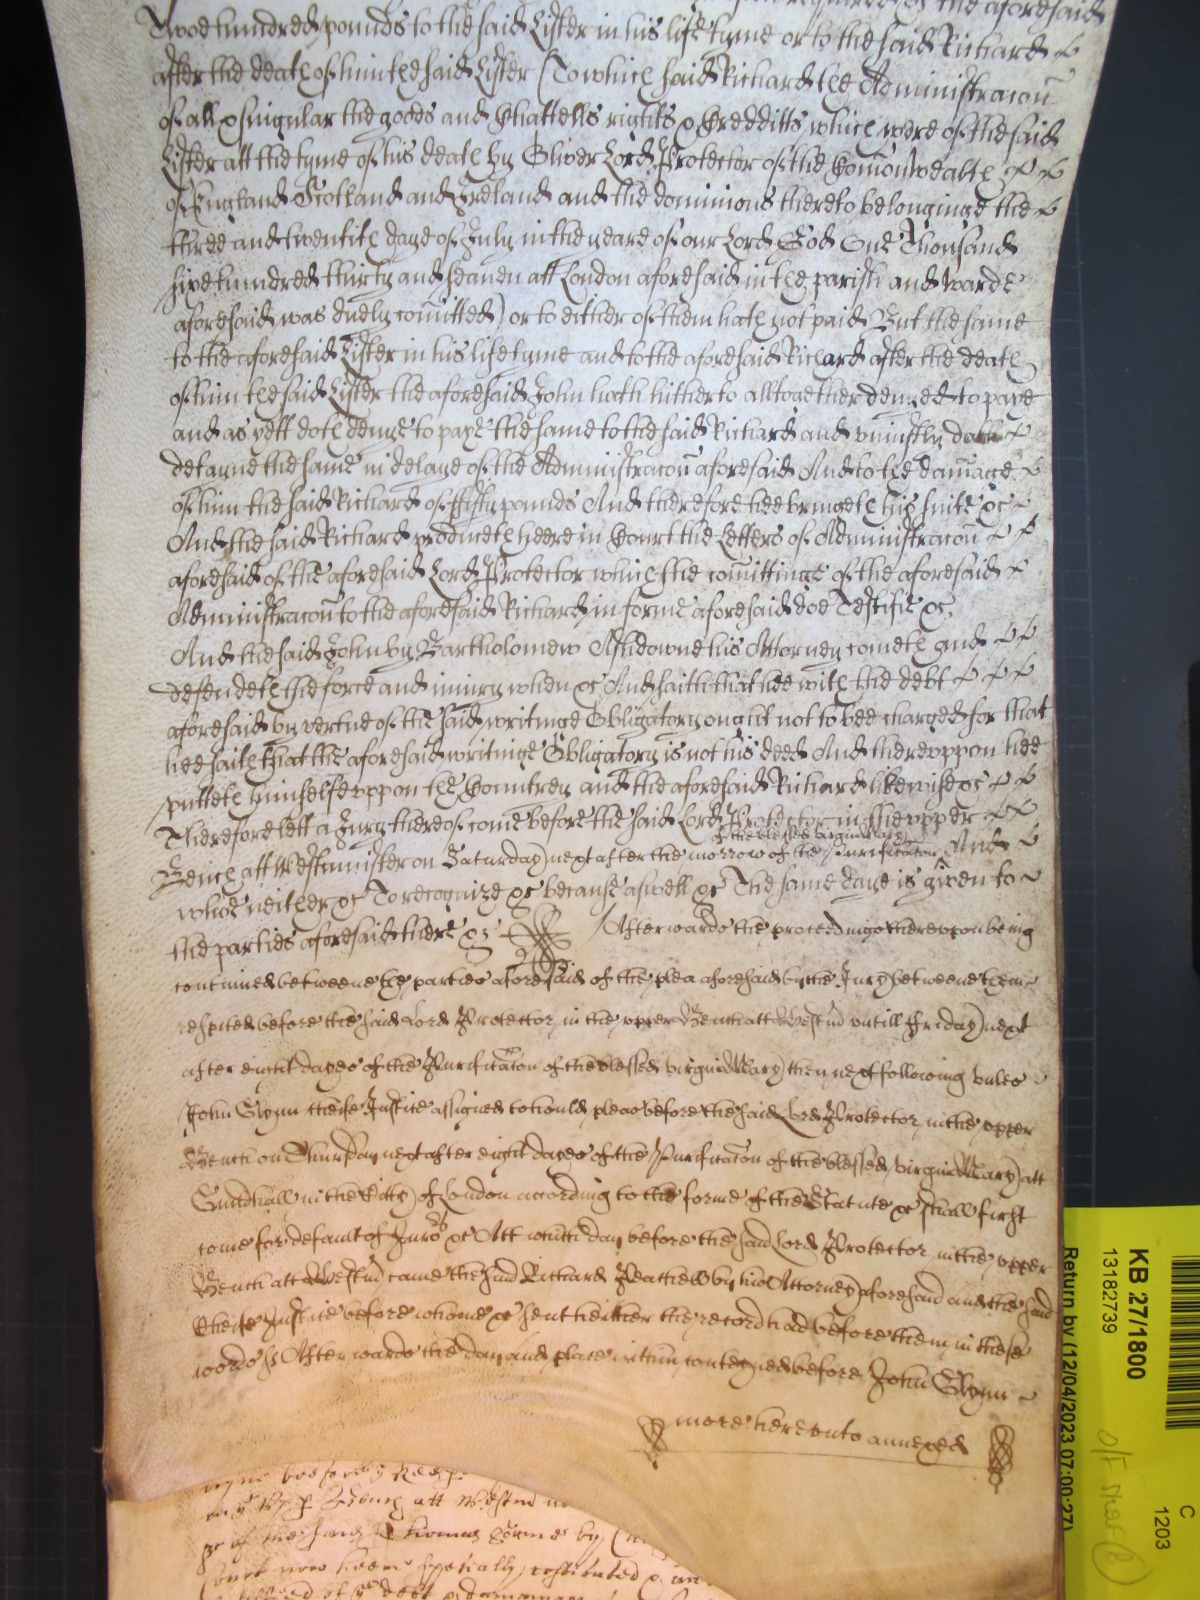 the aforesaid
Twoe hundred pounds to the said Lister in his life tyme or to the said Richard
after the death of him the said Lister (To which said Richard the Administracon
of all & singular the goods and Chattells rights & Creditts which were of the said
Lister att the tyme of his death by Oliver Lord Protector of the Comonwealth
of England Scotland and Ireland and the dominions thereto belonginge the
three and twentith daye of July in the yeare of our Lord God One Thousand
sixe hundred thirty and seaven att London aforesaid in the parish and warde
aforesaid was duely comitted) or to either of them hath not paid But the same
to the aforesaid Lister in his life tyme and to the aforesaid Richard after the death
of him the said Lister the aforesaid John hath hitherto alltogether denyed to paye
and as yett doth denye to paye the same to the said Richard and uniustly doth
detayne the same in delaye of the Administracon aforesaid And to the damage
of him the said Richard of fifty pounds And therefore hee bringeth his suite &c
And the said Richard produceth heere in Court the Letters of Administracon
aforesaid of the aforesaid Lord Protector which the comittinge of the aforesaid
Administracon to the aforesaid Richard in forme aforesaid doe Testifie &c
And the said John by Bartholomew Ashdowne his Attorney cometh and
defendeth the force and iniury when &c And saith that hee with the debt
aforesaid by vertue of the said writinge Obligatory ought not to bee charged for that
hee saith that the aforesaid writinge Obligatory is not his deed And thereuppon hee
putteth himselfe uppon the Countrey and the aforesaid Richard likewise &c
Therefore lett a Jury thereof come before the said Lord Protector in the upper
of the blessed virgin Mary
Bench att Westminster on Saturday next after the morrow of the Purificacon And
whoe neither &c To recognize &c because aswell &c The same daye is given to
the parties aforesaid there &c Afterwards the proceedings thereupon being
continued betweene the parties aforesaid of the plea aforesaid by the Jury betweene them
respited before the said Lord Protector in the upper Bench att Westmr untill Friday next
after eight dayes of the Purificacon of the blessed virgin Mary then next following unles
John Glynn cheife Justice assigned to hould pleas before the said Lord Protector in the upper
Bench on Thursday next after eight dayes of the Purificacon of the blessed virgin Mary att
Guildhall in the Citty of London according to the forme of the Statute &c shall first
come for default of Juro's &c Att which day before the said Lord Protector in the upper
Bench att Westmr came the said Richard by his Attorney aforesaid and the said
Cheife Justice before whome &c sent hether the record had before them in these
words ss Afterwards the day and place within conteyned before John Glynn
more hereunto annexed
bee for
Bench att Westmr
of the Thomas by
Court now heere specially
debt
KB 27/1800
13182739
Return by (12/04/2023 07:00:27)
C
1203